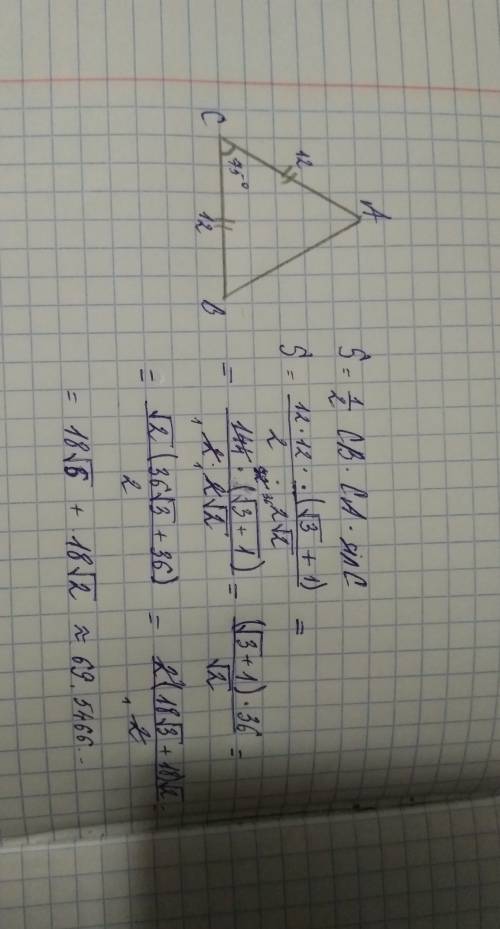 A
12
C
75°
12
B
S = 1/2 CB · CA · sin C
S = 12 · 12 · (√3 + 1) / 2 · 2√2 =
= 144 · (√3 + 1) / 2 · 2√2 = (√3 + 1) · 36 / √2 =
= √2 (36√3 + 36) / 2 = 2 (18√3 + 18)√2 / 2
= 18√6 + 18√2 ≈ 69.5466..